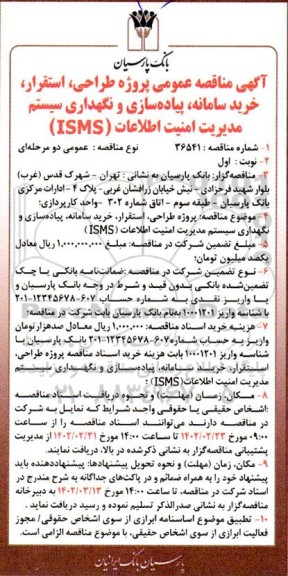 بانک پارسیان
آگهی مناقصه عمومی پروژه طراحی، استقرار،
خرید سامانه، پیاده‌سازی و نگهداری سیستم
مدیریت امنیت اطلاعات (ISMS)
۱- شماره مناقصه : ۳۶۵۴۱ نوع مناقصه : عمومی دو مرحله‌ای
۲- نوبت : اول
۳- مناقصه‌گزار: بانک پارسیان به نشانی : تهران - شهرک قدس (غرب)
بلوار شهید فرحزادی - نبش خیابان زرافشان غربی- پلاک ۴ - ادارات مرکزی
بانک پارسیان - طبقه سوم - اتاق شماره ۳۰۲ -واحد کارپردازی؛
۴- موضوع مناقصه: پروژه طراحی، استقرار، خرید سامانه، پیاده‌سازی و
نگهداری سیستم مدیریت امنیت اطلاعات (ISMS)
۵- مبلغ تضمین شرکت در مناقصه: مبلغ ۱,۰۰۰,۰۰۰,۰۰۰ ریال معادل
یکصد میلیون تومان؛
۶- نوع تضمین شرکت در مناقصه :ضمانت‌نامه بانکی یا چک
تضمین‌شده بانکی بدون قید و شرط در وجه بانک پارسیان و
یا واریز نقدی به شماره حساب ۶۰۷-۱۲۳۴۵۶۷۸-۲۰۱
با شناسه واریز ۱۰۰۰۱۲۰۱ به‌نام بانک پارسیان بابت شرکت در مناقصه؛
۷- هزینه خرید اسناد مناقصه: ۱,۰۰۰,۰۰۰ ریال معادل صدهزار تومان
واریز به حساب شماره ۶۰۷-۱۲۳۴۵۶۷۸-۲۰۱ بانک پارسیان با
شناسه واریز ۱۰۰۰۱۲۰۱ بابت هزینه خرید اسناد مناقصه پروژه طراحی،
استقرار، خرید سامانه، پیاده‌سازی و نگهداری سیستم
مدیریت امنیت اطلاعات (ISMS) ؛
۸- مکان، زمان (مهلت) و نحوه دریافت اسناد مناقصه
:اشخاص حقیقی یا حقوقی واجد شرایط که تمایل به شرکت
در مناقصه دارند می‌توانند اسناد مناقصه را از ساعت
۰۹:۰۰ مورخ ۱۴۰۲/۰۲/۲۳ تا ساعت ۱۴:۰۰ مورخ ۱۴۰۲/۰۲/۳۱ از مدیریت
پشتیبانی مناقصه‌گزار به نشانی ذکرشده در بالا، دریافت نمایند.
۹- مکان، زمان (مهلت) و نحوه تحویل پیشنهادها: پیشنهاددهنده باید
پیشنهاد خود را به همراه ضمائم و در پاکت‌های جداگانه به شرح مندرج در
اسناد شرکت در مناقصه، تا ساعت ۱۴:۰۰ مورخ ۱۴۰۲/۰۳/۱۳ به دبیرخانه
مناقصه‌گزار به نشانی صدرالذکر تسلیم نموده و رسید دریافت نماید .
۱۰- تطبیق موضوع اساسنامه ابرازی از سوی اشخاص حقوقی/ مجوز
فعالیت ابرازی از سوی اشخاص حقیقی، با موضوع مناقصه الزامی است.
پارسیان بانک ایرانیان